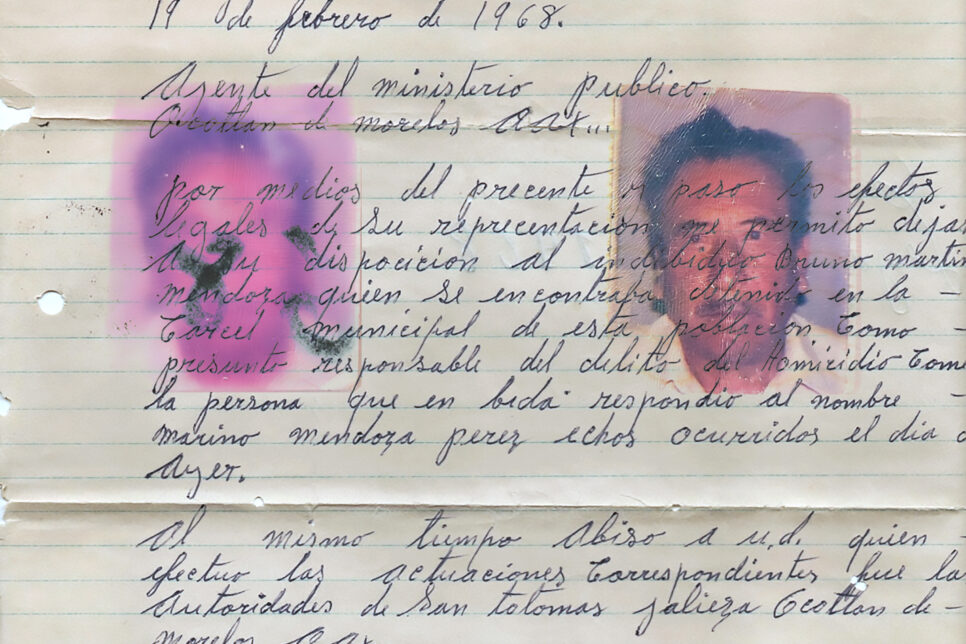 19 de febrero de 1968.
Agente del ministerio publico.
Ocotlan de morelos Oax...
por medios del precente y paso los efectos
legales de su reprecentacion me permito dejar
A su dispocicion al indibiduo Bruno martin
mendoza quien se encontraba detenido en la -
Carcel municipal de esta poblacion Como -
presunto responsable del delito del Homicidio Come
la persona que en bida respondio al nombre -
marino mendoza perez echos ocurridos el dia d
Ayer.
Al mismo tiempo Abiso a u.d. quien -
efectuo las actuaciones Correspondientes fue las
Autoridades de San totomas jalieza Ocotlan de -
morelos Oax.